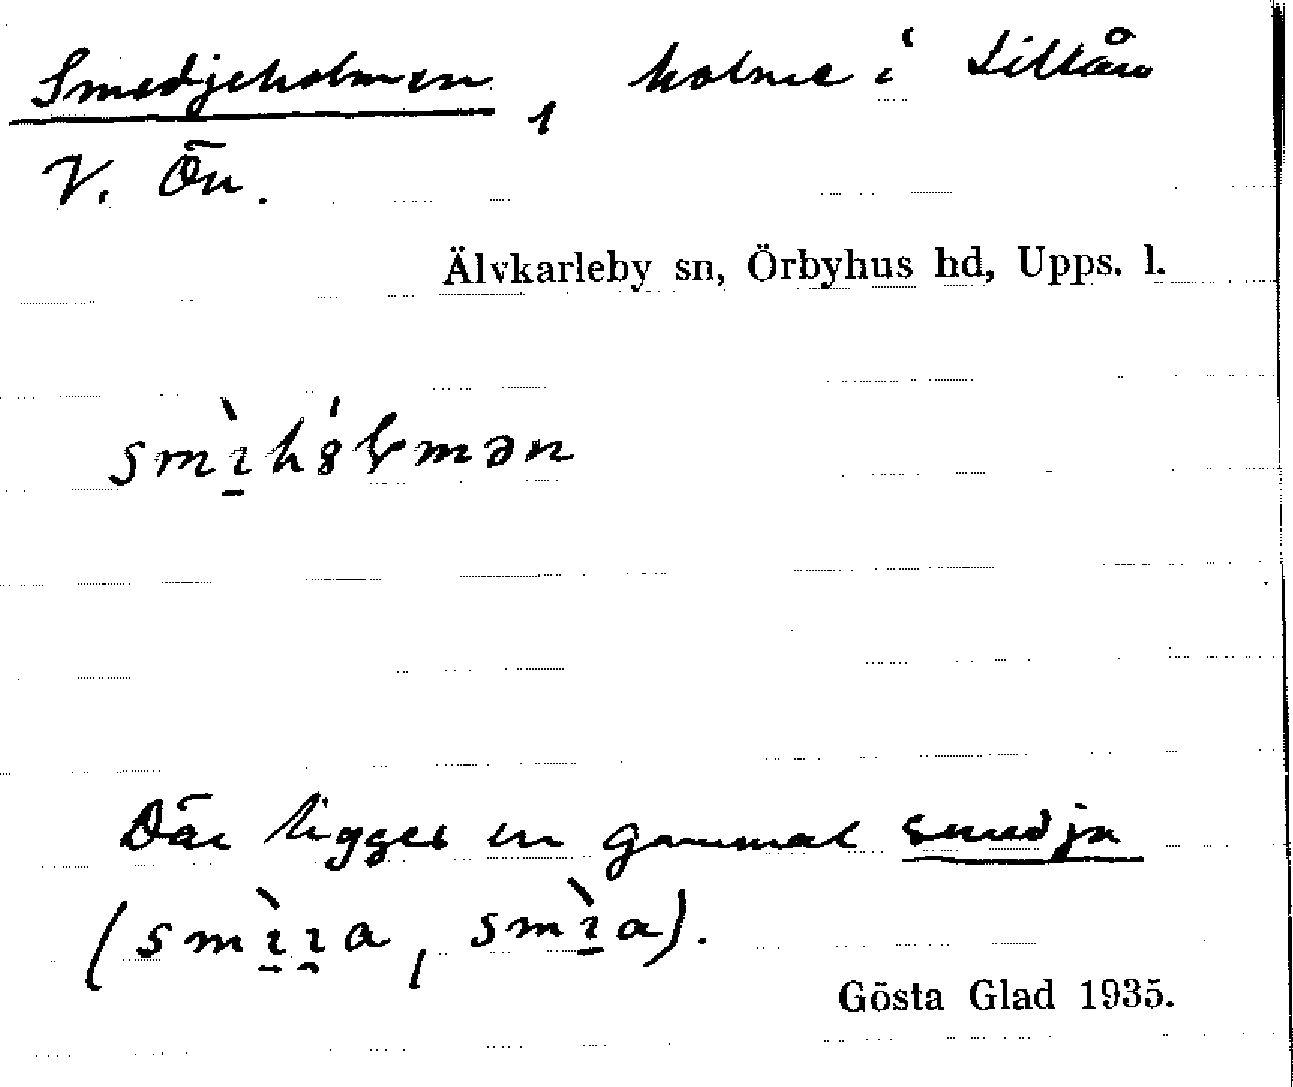 Smedjeholmen, holme i Lillån
V. Ön.
Älvkarleby sn, Örbyhus hd, Upps. l.
Där ligger en gammal smedja
Gösta Glad 1935.